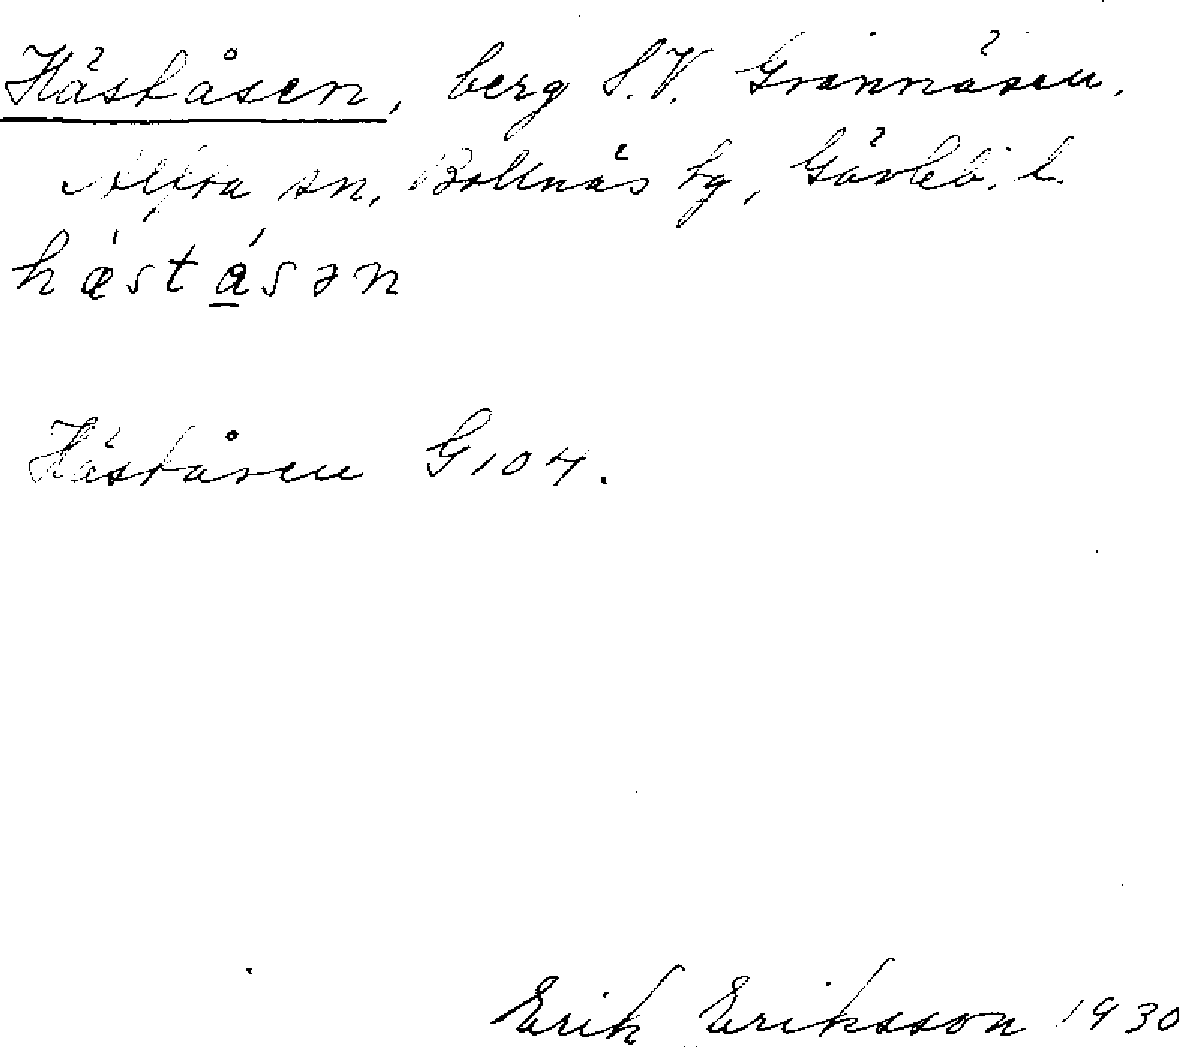 Häståsen, berg S.V. Grannäsen.
Alfta sn, Bollnäs tg, Gävleb. l.
hæ´stá̲sən
Häståsen G 104.
Erik Eriksson 1930